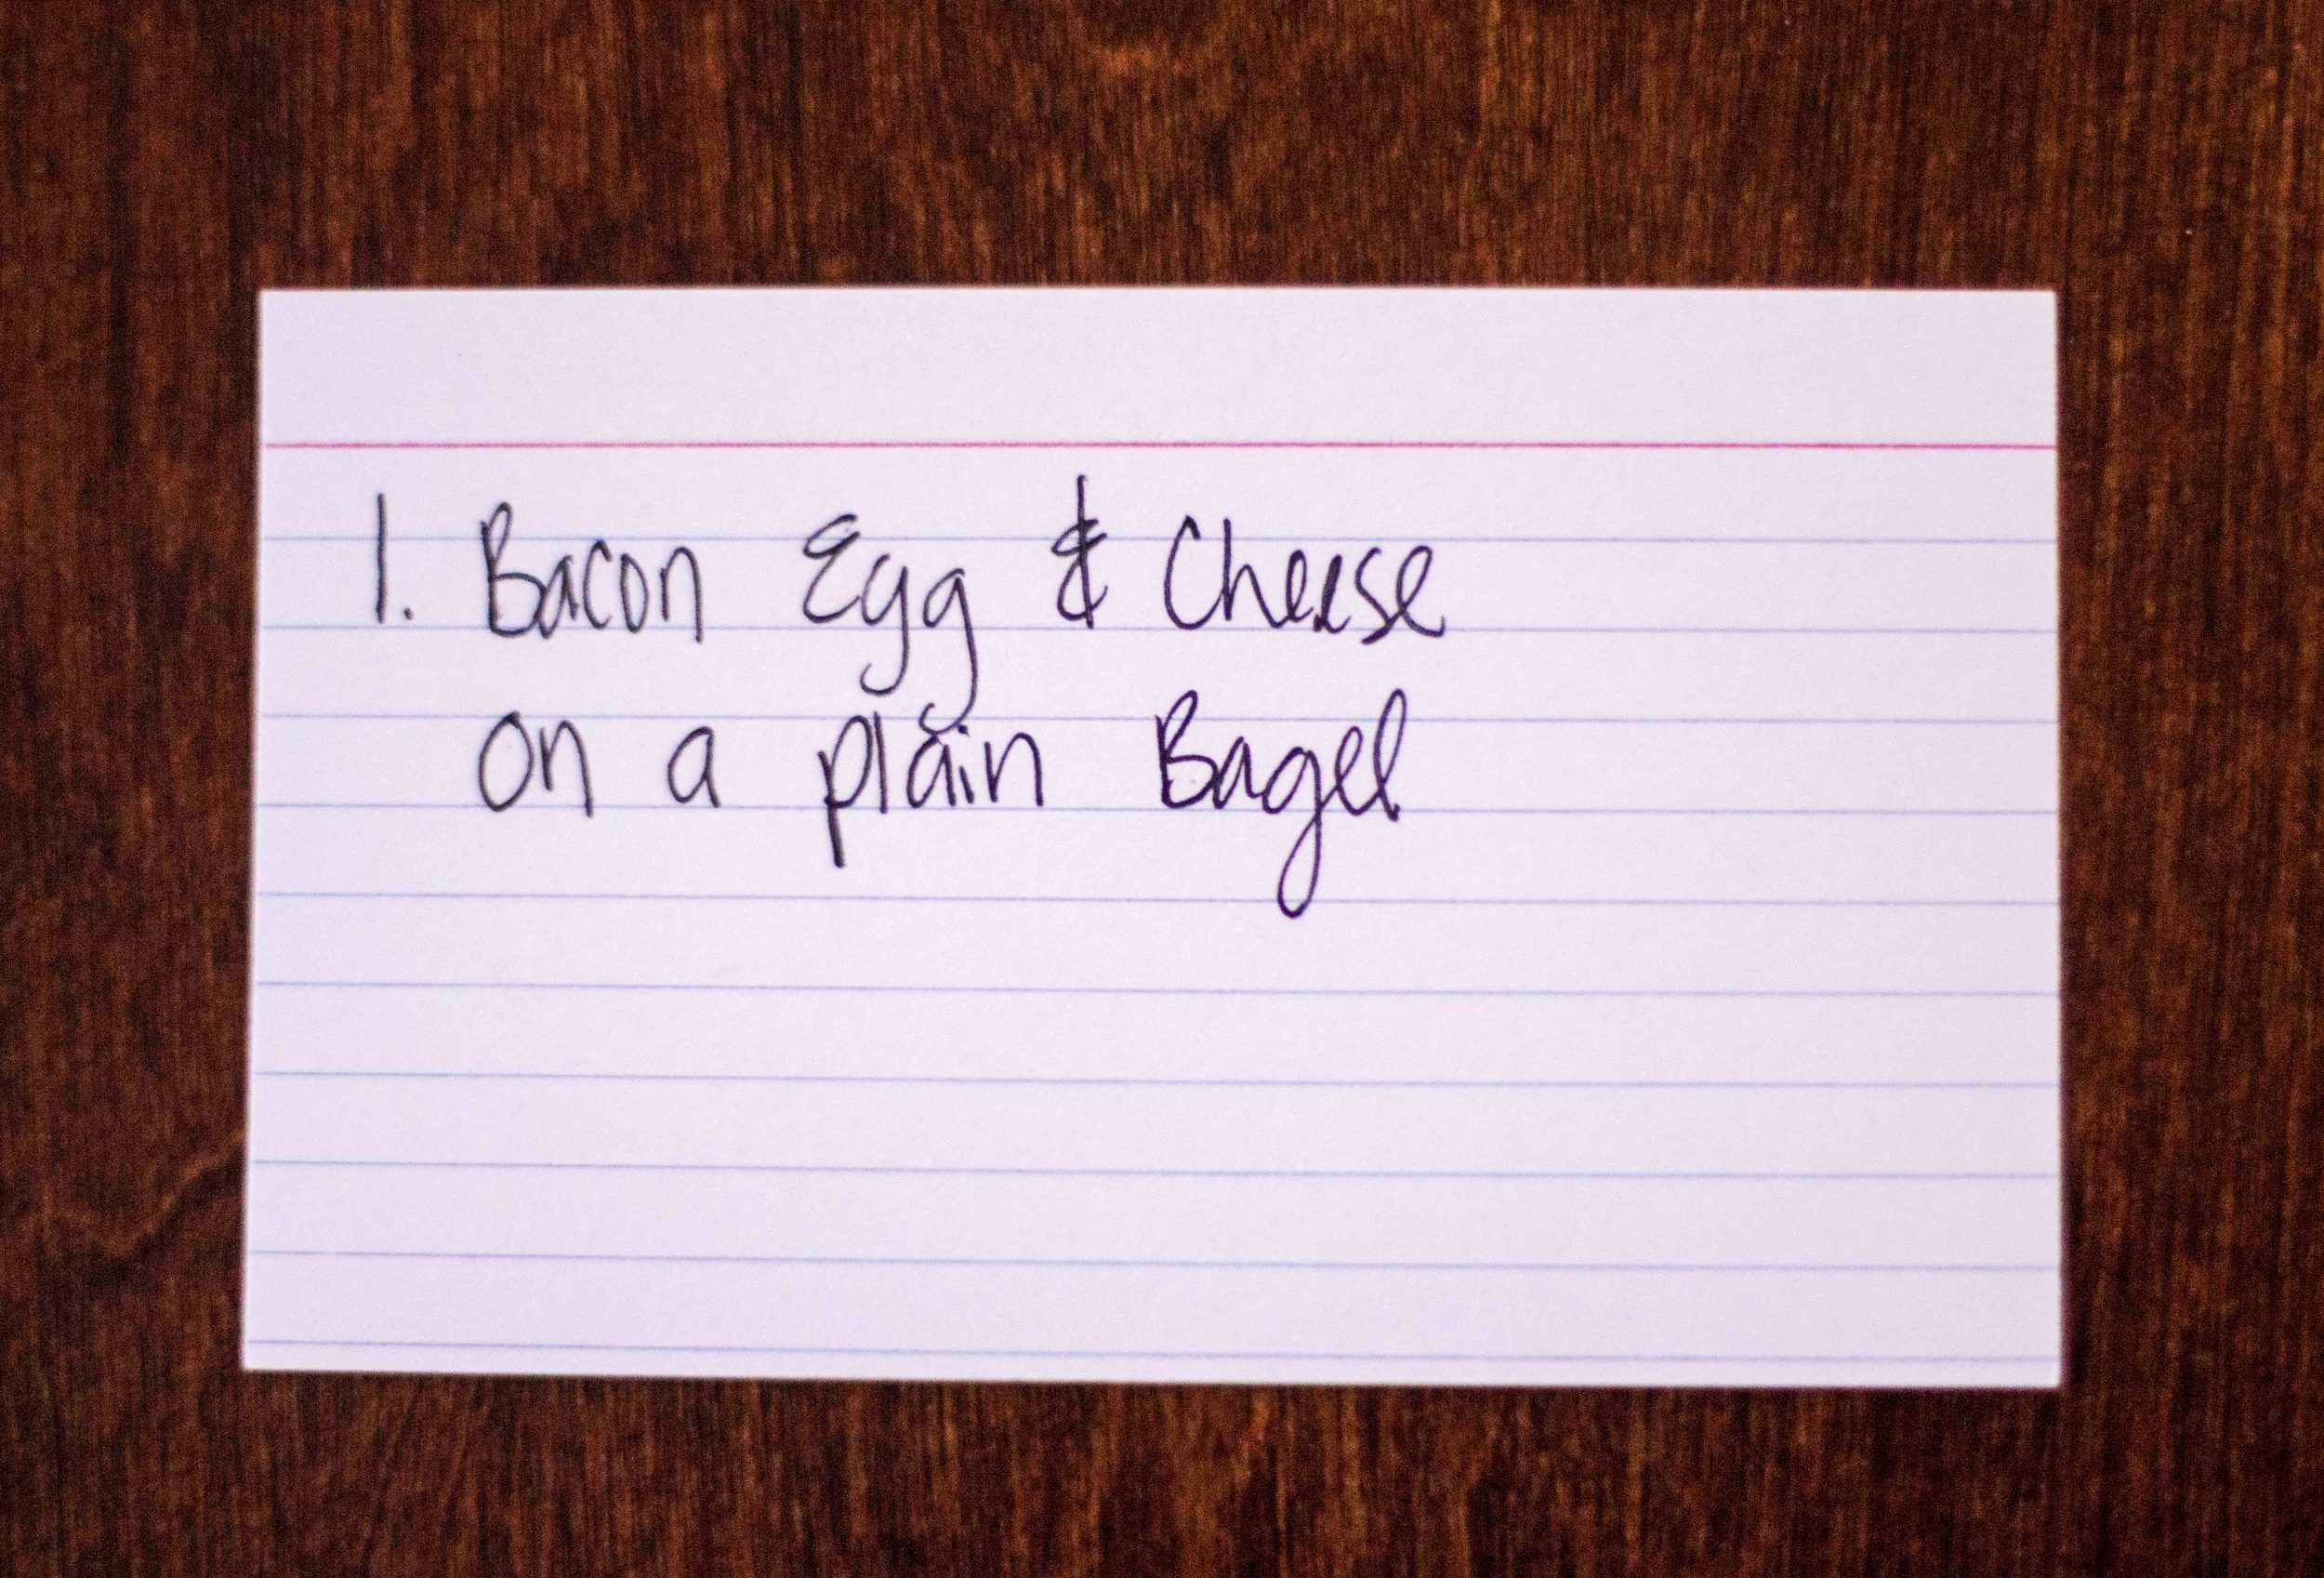 1. Bacon Egg & Cheese
on a plain Bagel